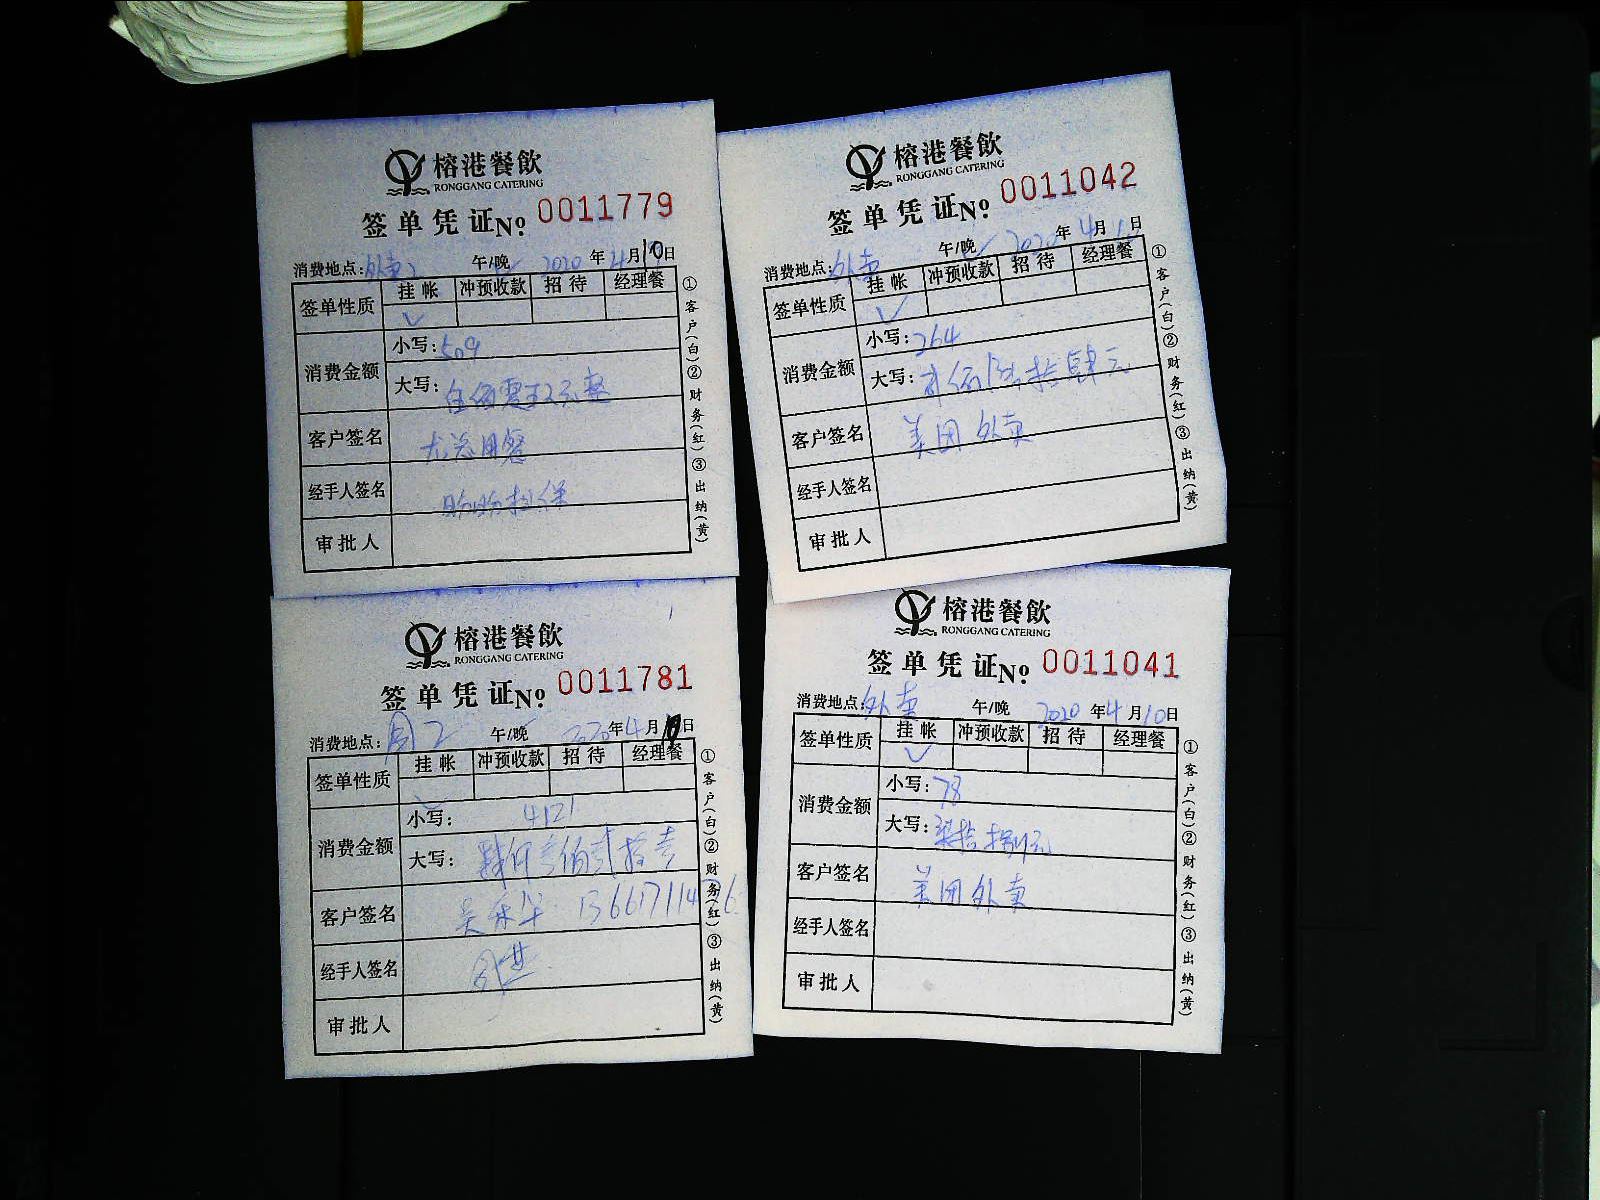 榕港餐飲
RONGGANG CATERING
签单凭证 No. 0011779
消费地点:外卖2 午/晚 2020年4月10日
签单性质 挂帐 冲预收款 招待 经理餐
消费金额 小写:509
大写:伍佰零玖元整
客户签名 尤总用餐
经手人签名 担保
审批人
①客户(白)②财务(红)③出纳(黄)
榕港餐飲
RONGGANG CATERING
签单凭证 No. 0011042
消费地点:外卖 午/晚 2020年4月日
签单性质 挂帐 冲预收款 招待 经理餐
消费金额 小写:264
大写:贰佰陆拾肆元
客户签名 美团外卖
经手人签名
审批人
①客户(白)②财务(红)③出纳(黄)
榕港餐飲
RONGGANG CATERING
签单凭证 No. 0011781
消费地点: 午/晚 2020年4月日
签单性质 挂帐 冲预收款 招待 经理餐
消费金额 小写:4121
大写:肆仟壹佰贰拾壹
客户签名
经手人签名
审批人
①客户(白)②财务(红)③出纳(黄)
榕港餐飲
RONGGANG CATERING
签单凭证 No. 0011041
消费地点:外卖 午/晚 2020年4月10日
签单性质 挂帐 冲预收款 招待 经理餐
消费金额 小写:78
大写:柒拾捌元
客户签名 美团外卖
经手人签名
审批人
①客户(白)②财务(红)③出纳(黄)